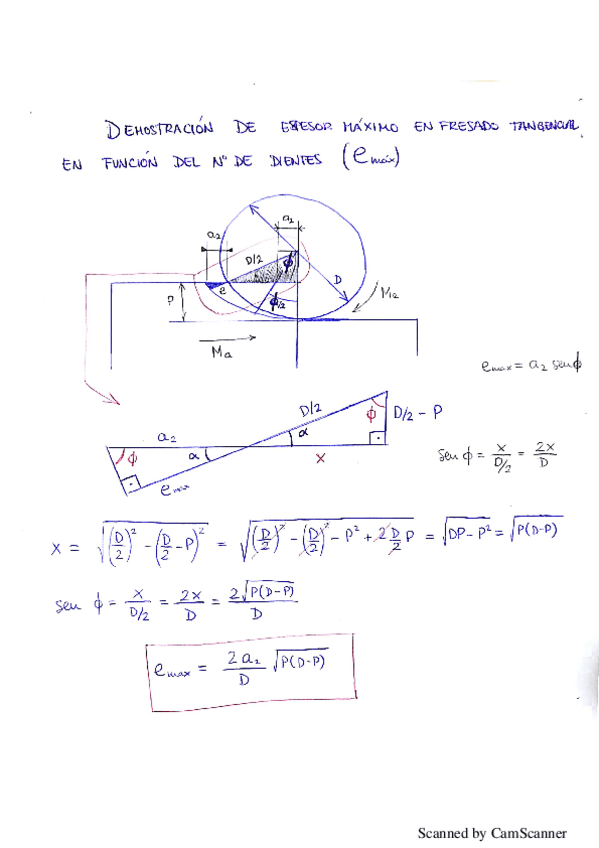 DEMOSTRACIÓN DE ESPESOR MÁXIMO EN FRESADO TANGENCIAL
EN FUNCIÓN DEL Nº DE DIENTES (e máx)
a₂
a₂
D/2
ϕ
D
P
e
ϕ/2
M12
Ma
e max = a₂ sen ϕ
D/2
ϕ
D/2 - P
a₂
α
ϕ
α
x
e max
sen ϕ = x/(D/2) = 2x/D
x = √((D/2)² - (D/2 - P)²) = √((D/2)² - (D/2)² - P² + 2 D/2 P) = √(DP - P²) = √(P(D-P))
sen ϕ = x/(D/2) = 2x/D = 2√(P(D-P))/D
e max = 2a₂/D √(P(D-P))
Scanned by CamScanner